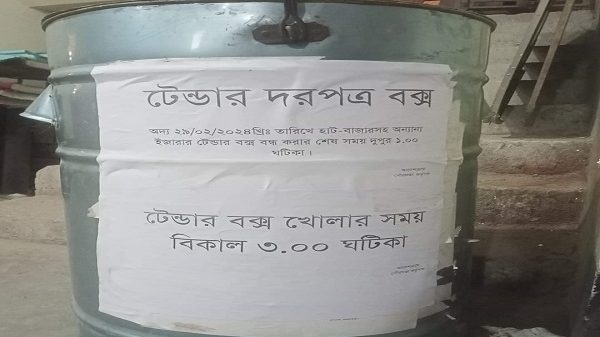 টেন্ডার দরপত্র বক্স
অদ্য ২৯/০২/২০২৪খ্রিঃ তারিখে হাট-বাজারসহ অন্যান্য
ইজারার টেন্ডার বক্স বন্ধ করার শেষ সময় দুপুর ১.০০
ঘটিকা ।
টেন্ডার বক্স খোলার সময়
বিকাল ৩.০০ ঘটিকা